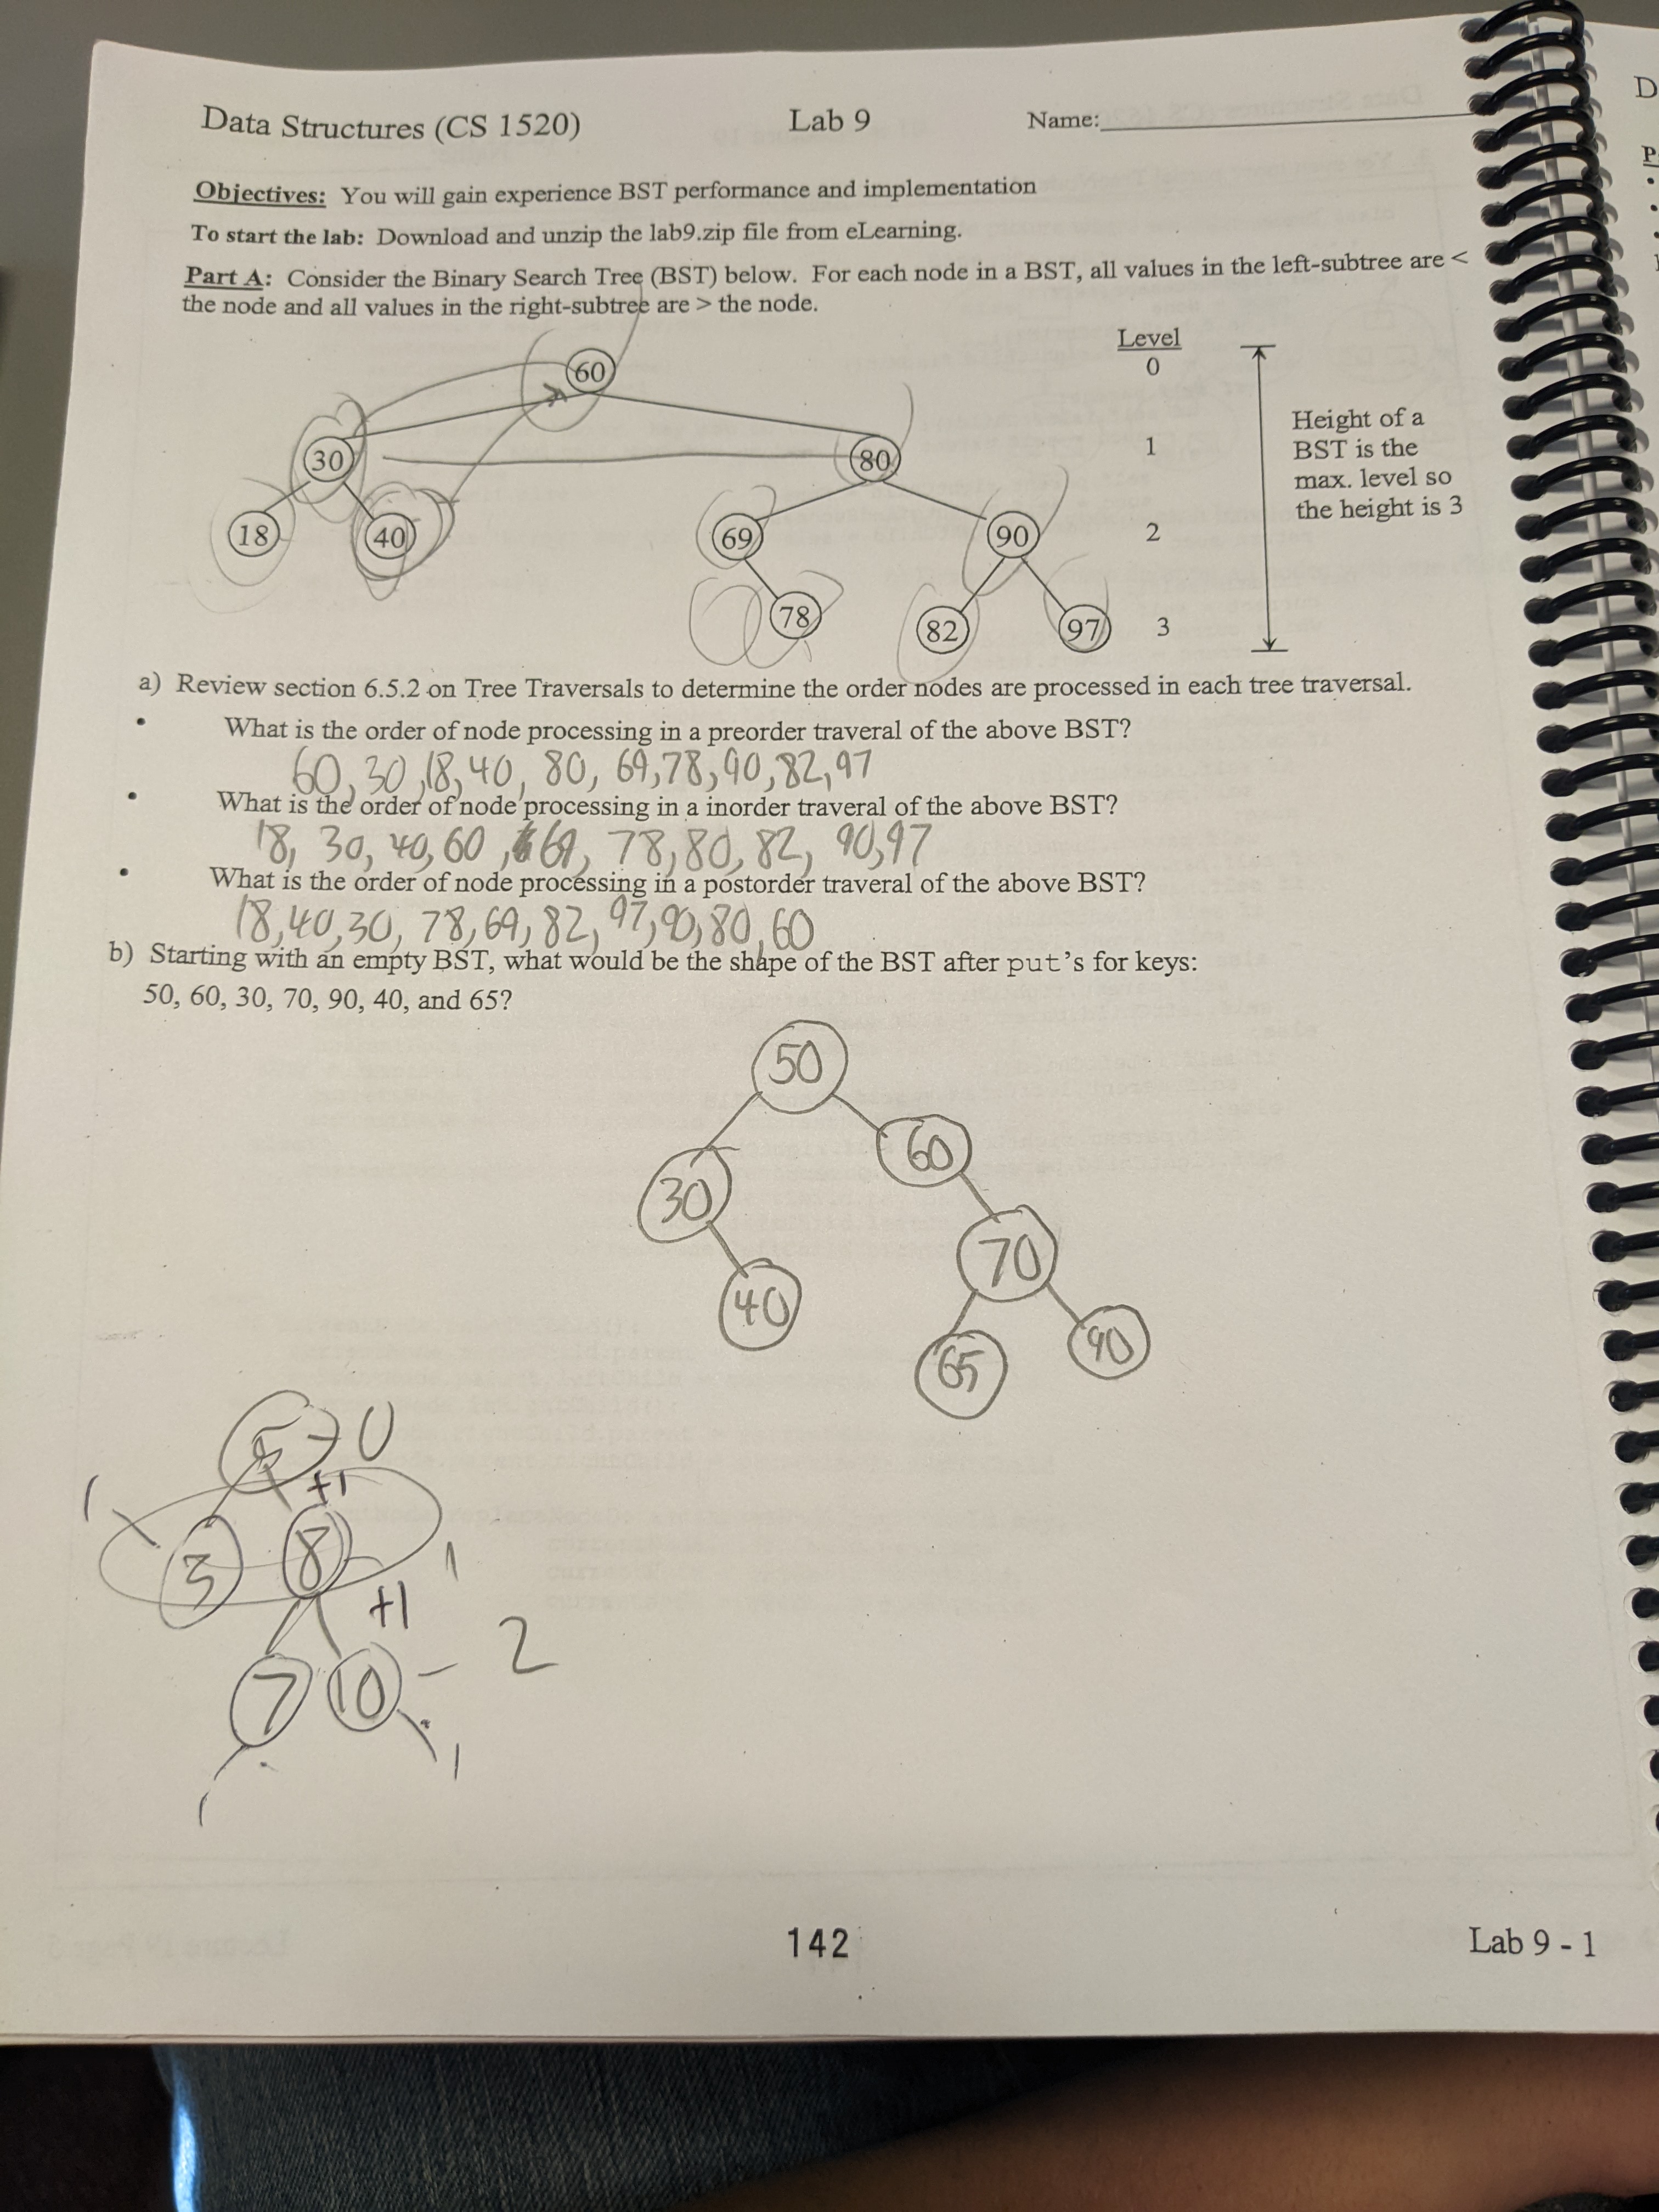 Data Structures (CS 1520) Lab 9 Name:
Objectives: You will gain experience BST performance and implementation
To start the lab: Download and unzip the lab9.zip file from eLearning.
Part A: Consider the Binary Search Tree (BST) below. For each node in a BST, all values in the left-subtree are <
the node and all values in the right-subtree are > the node.
Level
60 0
30 80 1
18 40 69 90 2
78 82 97 3
Height of a
BST is the
max. level so
the height is 3
a) Review section 6.5.2 on Tree Traversals to determine the order nodes are processed in each tree traversal.
• What is the order of node processing in a preorder traveral of the above BST?
60, 30, 18, 40, 80, 69, 78, 90, 82, 97
• What is the order of node processing in a inorder traveral of the above BST?
18, 30, 40, 60, 69, 78, 80, 82, 90, 97
• What is the order of node processing in a postorder traveral of the above BST?
18, 40, 30, 78, 69, 82, 97, 90, 80, 60
b) Starting with an empty BST, what would be the shape of the BST after put's for keys:
50, 60, 30, 70, 90, 40, and 65?
50
30 60
40 70
65 90
5 0
+1
1 3 8 1
+1
7 10 - 2
1
142
Lab 9 - 1
D